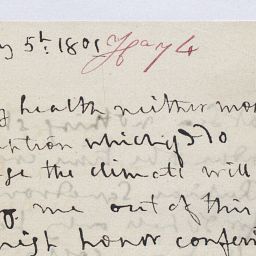 y 5th. 1801 Hay 4
y health neither mo
ption which
ge the climate will
me out of this
high honor conferr